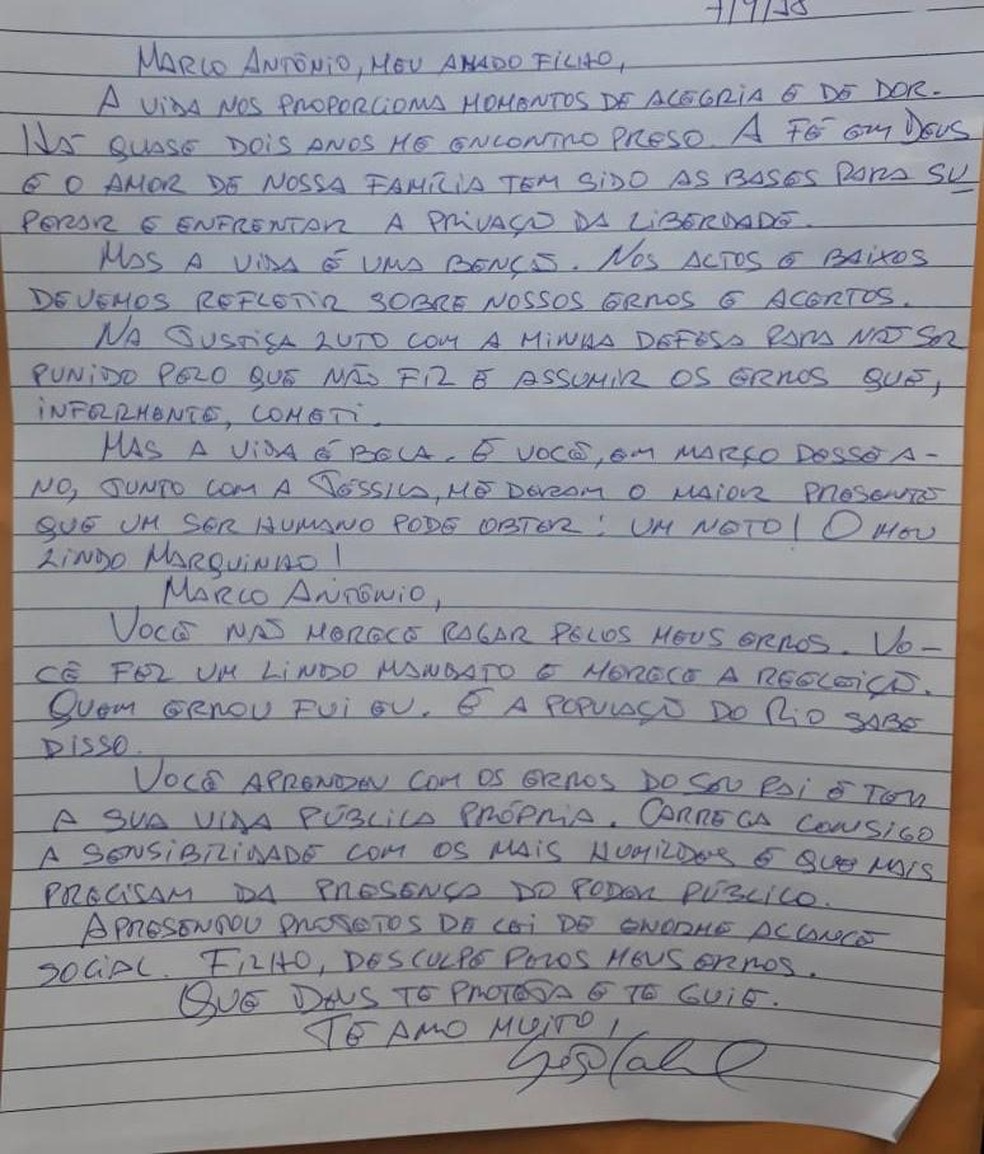 7/9/18
MARCO ANTÔNIO, MEU AMADO FILHO,
A VIDA NOS PROPORCIONA MOMENTOS DE ALEGRIA E DE DOR.
HÁ QUASE DOIS ANOS ME ENCONTRO PRESO. A FÉ EM DEUS
E O AMOR DE NOSSA FAMÍLIA TEM SIDO AS BASES PARA SU
PERAR E ENFRENTAR A PRIVAÇÃO DA LIBERDADE.
MAS A VIDA É UMA BENÇÃO. NOS ALTOS E BAIXOS
DEVEMOS REFLETIR SOBRE NOSSOS ERROS E ACERTOS.
NA JUSTIÇA LUTO COM A MINHA DEFESA PARA NÃO SER
PUNIDO PELO QUE NÃO FIZ E ASSUMIR OS ERROS QUE,
INFELIZMENTE, COMETI.
MAS A VIDA É BELA. E VOCÊ, EM MARÇO DESSE A-
NO, JUNTO COM A JÉSSICA, ME DERAM O MAIOR PRESENTE
QUE UM SER HUMANO PODE OBTER: UM NETO! O MEU
LINDO MARQUINHO!
MARCO ANTÔNIO,
VOCÊ NÃO MERECE PAGAR PELOS MEUS ERROS. VO-
CÊ FEZ UM LINDO MANDATO E MERECE A REELEIÇÃO.
QUEM ERROU FUI EU. E A POPULAÇÃO DO RIO SABE
DISSO.
VOCÊ APRENDEU COM OS ERROS DO SEU PAI E TEM
A SUA VIDA PÚBLICA PRÓPRIA. CARREGA CONSIGO
A SENSIBILIDADE COM OS MAIS HUMILDES E QUE MAIS
PRECISAM DA PRESENÇA DO PODER PÚBLICO.
APRESENTOU PROJETOS DE LEI DE ENORME ALCANCE
SOCIAL. FILHO, DESCULPE PELOS MEUS ERROS.
QUE DEUS TE PROTEJA E TE GUIE.
TE AMO MUITO,